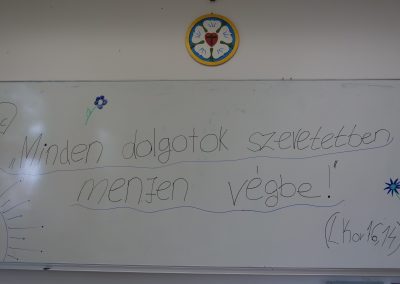 „Minden dolgotok szeretetben
menjen végbe!"
(I. Kor 16,14)